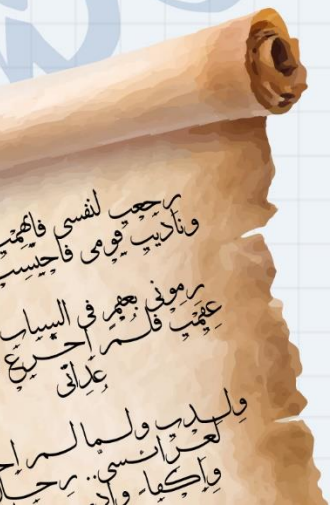 رجعت لنفسي فاتهمت
وناديت قومي فاحتسبت
رموني بعقم في الشباب
عقمت فلم أجزع
عداتي
ولدت ولما لم
لعرائسي.. رجال
وأكفاء